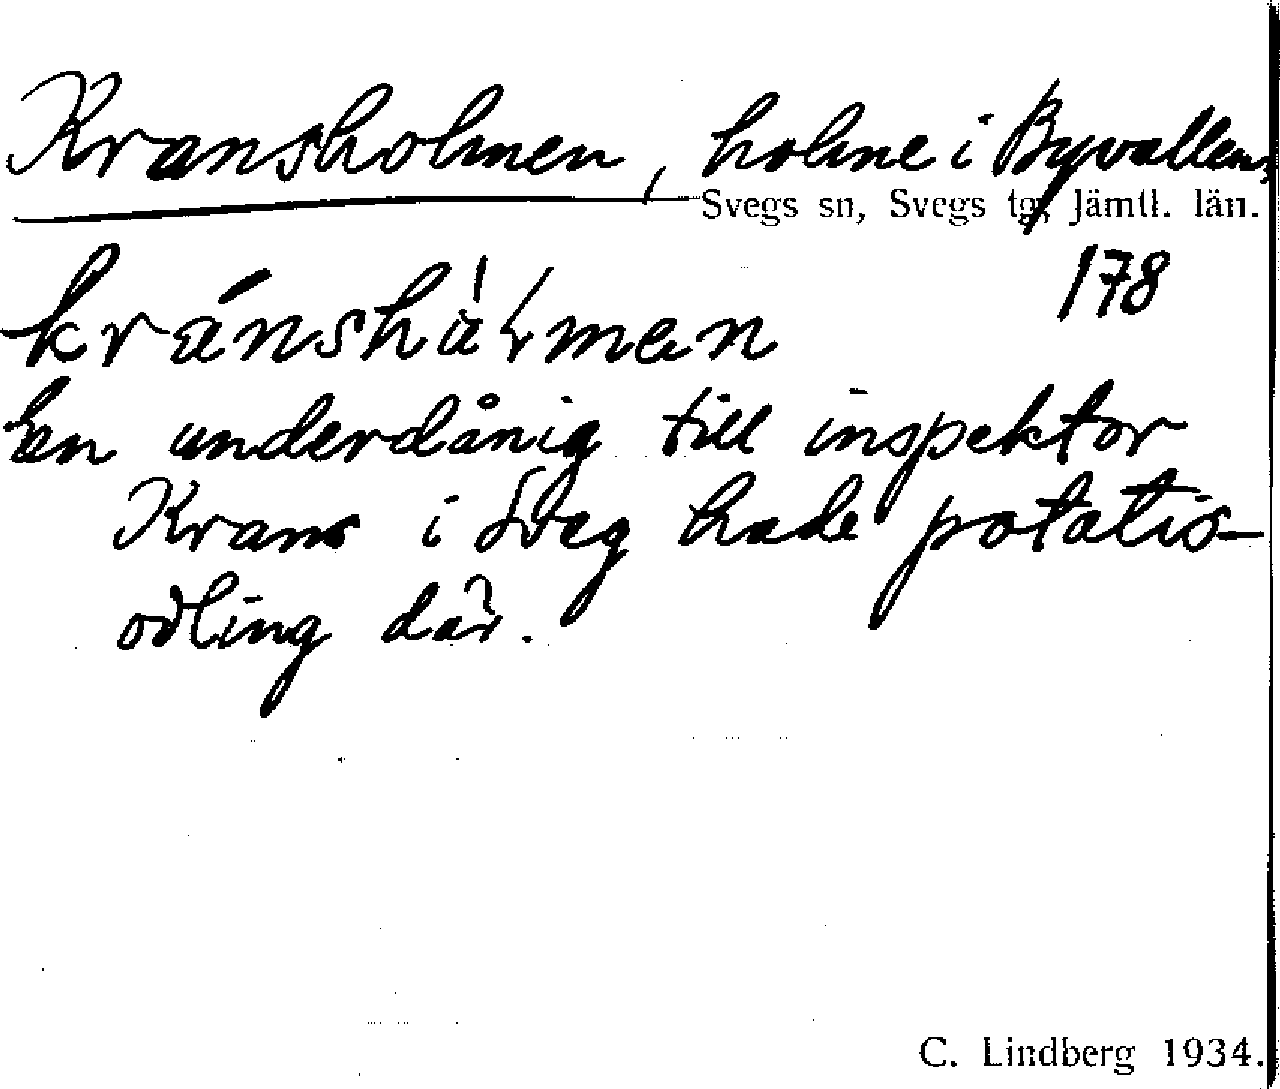 Kransholmen, holme i Byvallen,
Svegs sn, Svegs tg, Jämtl. län.
178
kránshàɽmen
En underdånig till inspektor
Krans i Sveg hade potatis-
odling där.
C. Lindberg 1934.